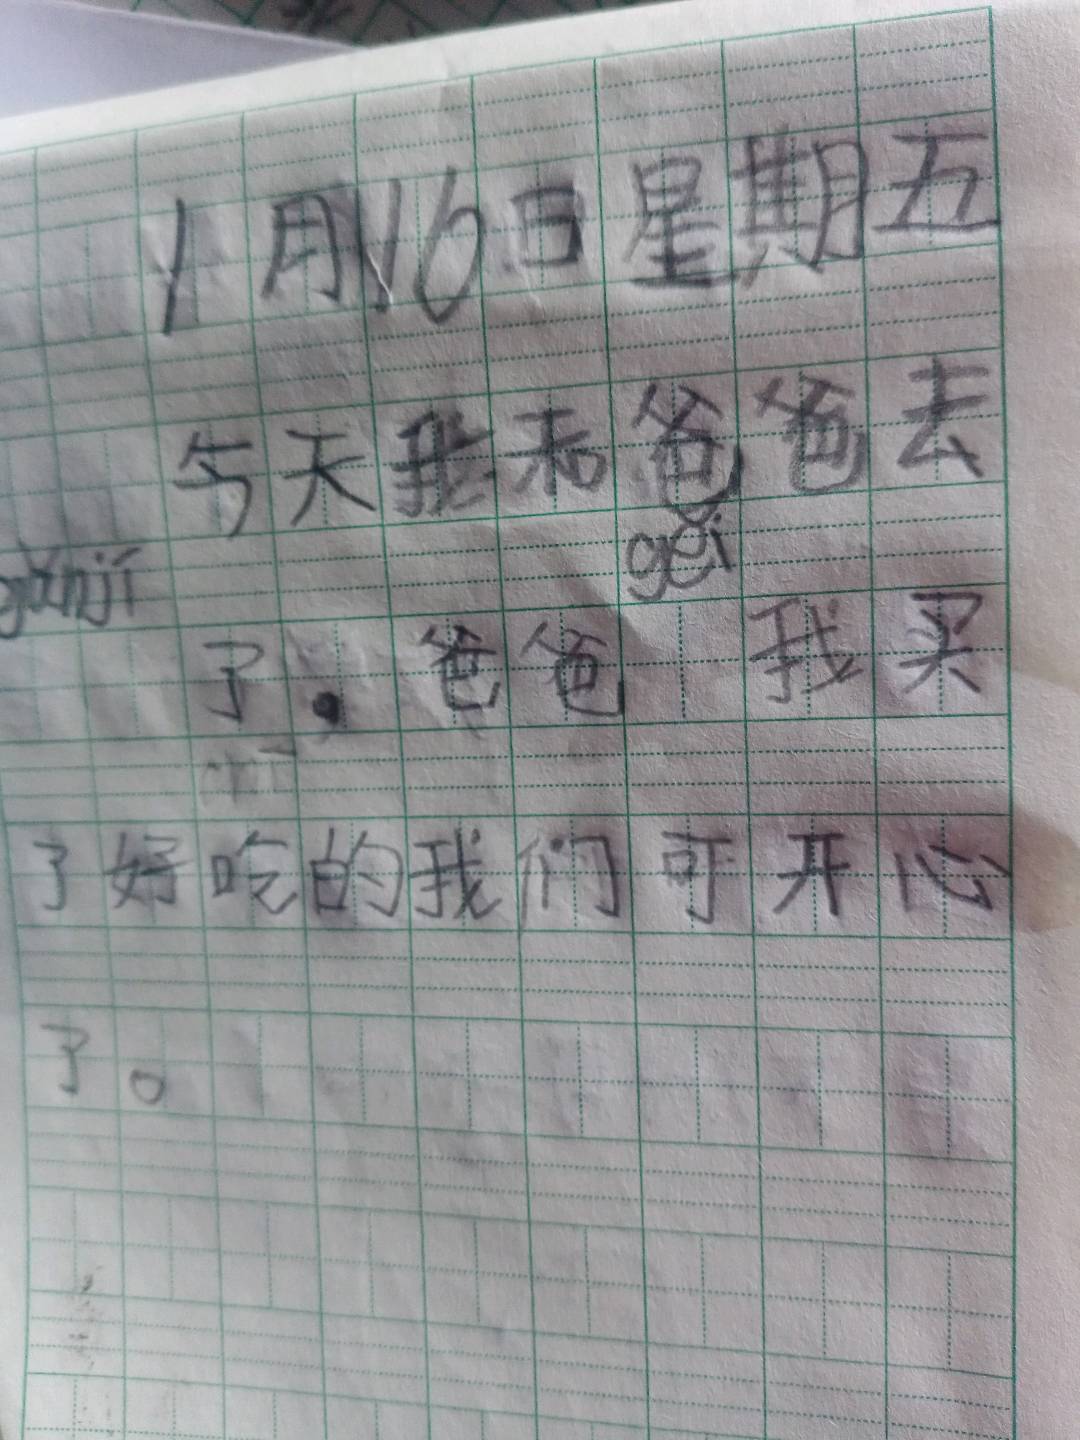 1月16日星期五
今天我和爸爸去
gǎnjí了。爸爸gěi我买
了好吃的我们可开心
了。